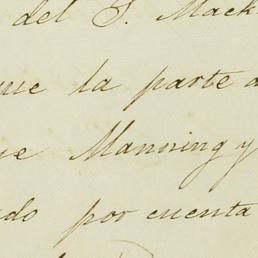 del S. Mack
que la parte
que Manning y
ado por cuenta